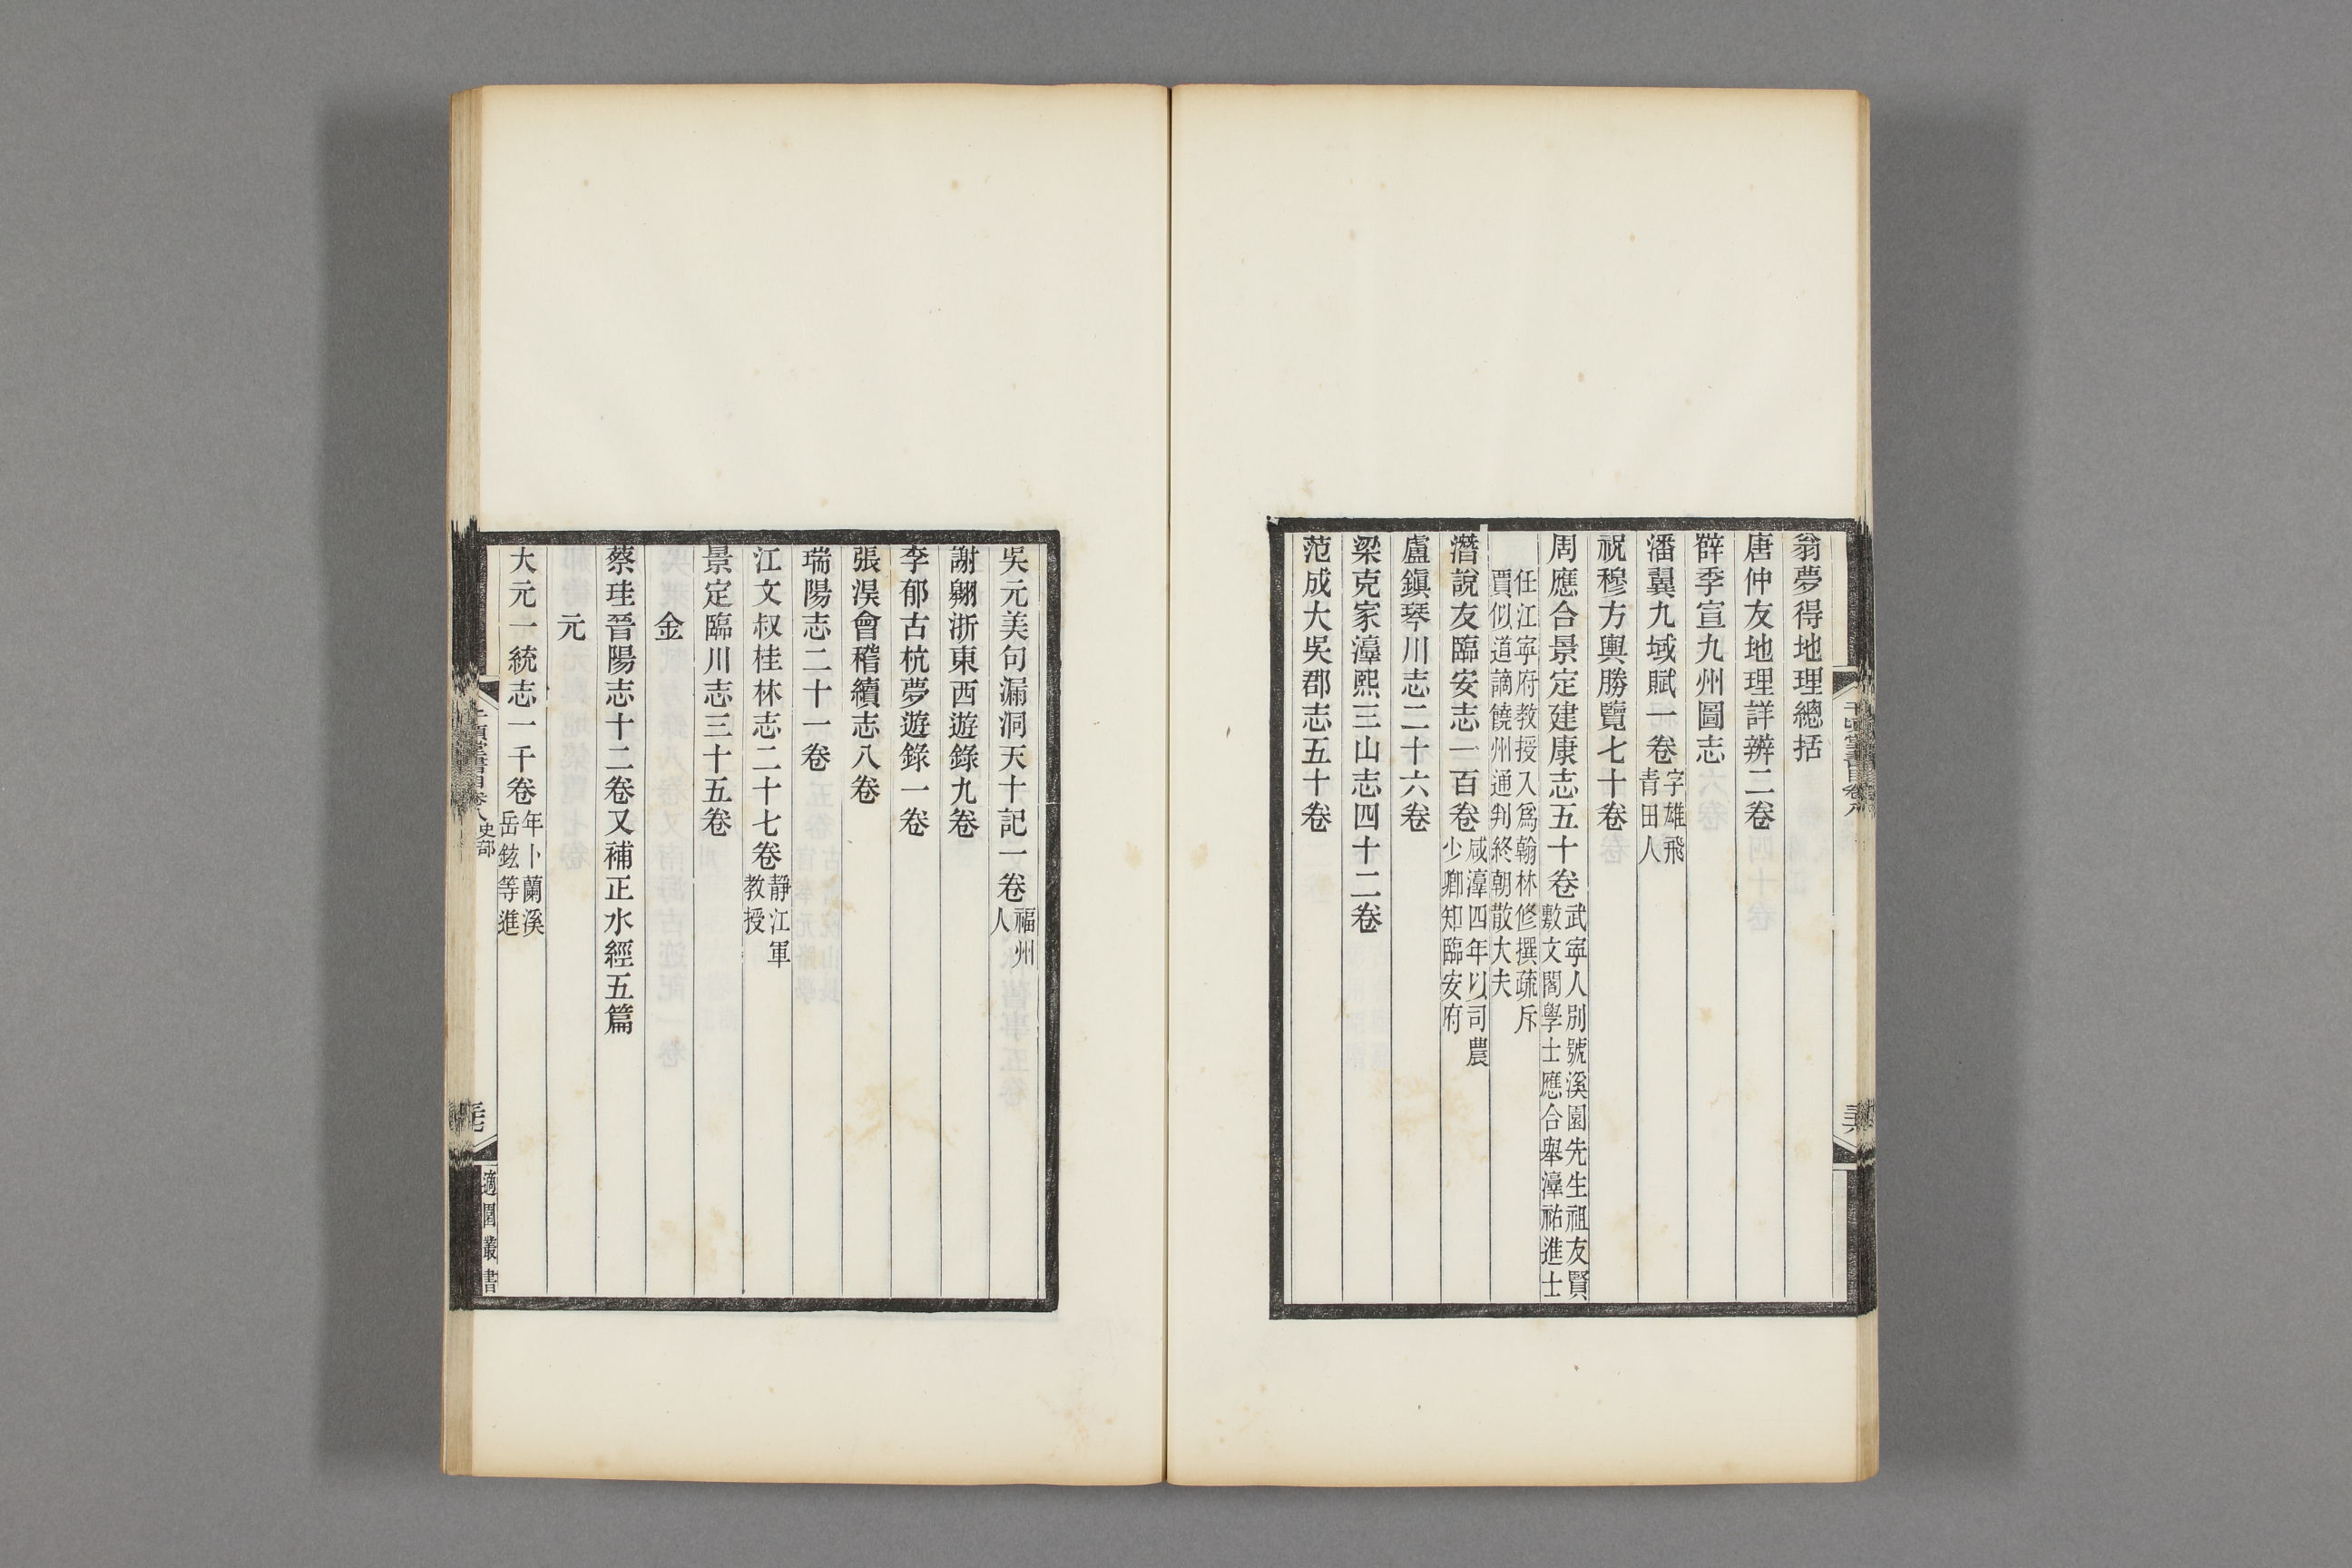 翁夢得地理總括
唐仲友地理詳辨二卷
薛季宣九州圖志
潘翼九域賦一卷字雄飛
青田人
祝穆方輿勝覽七十卷
周應合景定建康志五十卷武寧人別號溪園先生祖友賢
敷文閣學士應合舉湻祐進士
任江寧府教授入爲翰林修撰疏斥
賈似道謫饒州通判終朝散大夫
潛說友臨安志一百卷咸湻四年以司農
少卿知臨安府
盧鎭琴川志二十六卷
梁克家湻熙三山志四十二卷
范成大吳郡志五十卷
吳元美句漏洞天十記一卷福州
人
謝翺浙東西遊錄九卷
李郁古杭夢遊錄一卷
張淏會稽續志八卷
瑞陽志二十一卷
江文叔桂林志二十七卷靜江軍
教授
景定臨川志三十五卷
金
蔡珪晉陽志十二卷又補正水經五篇
元
大元一統志一千卷年卜蘭溪
岳鉉等進
千頃堂書目卷八史部
適園叢書